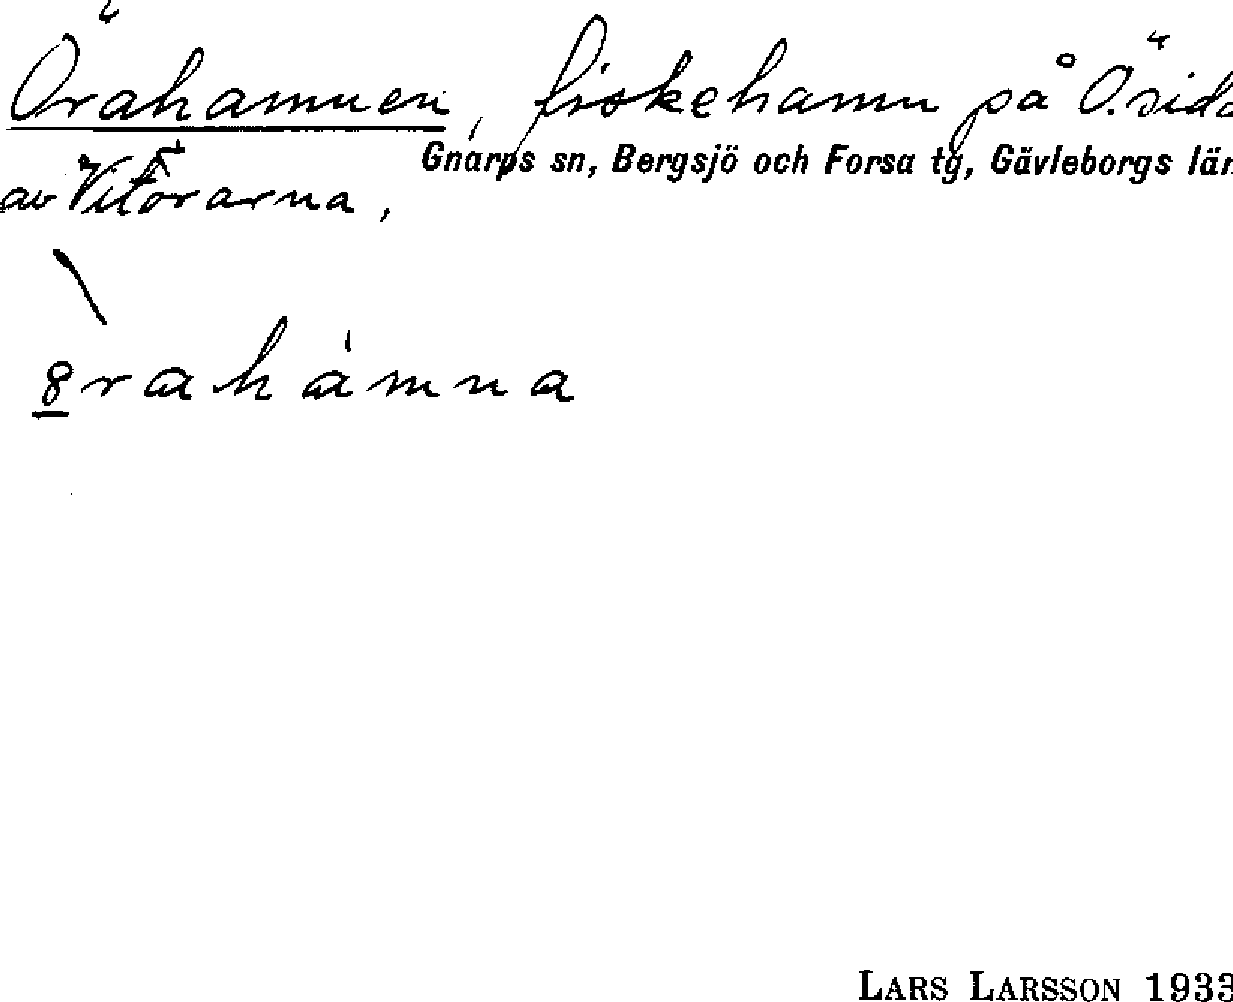 Örahamnen, fiskehamn på Ö. sida
Gnarps sn, Bergsjö och Forsa tg, Gävleborgs län
av Vitörarna,
8rahámna
LARS LARSSON 1933